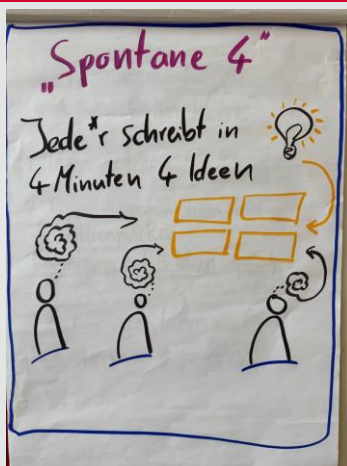 „Spontane 4“
Jede*r schreibt in
4 Minuten 4 Ideen